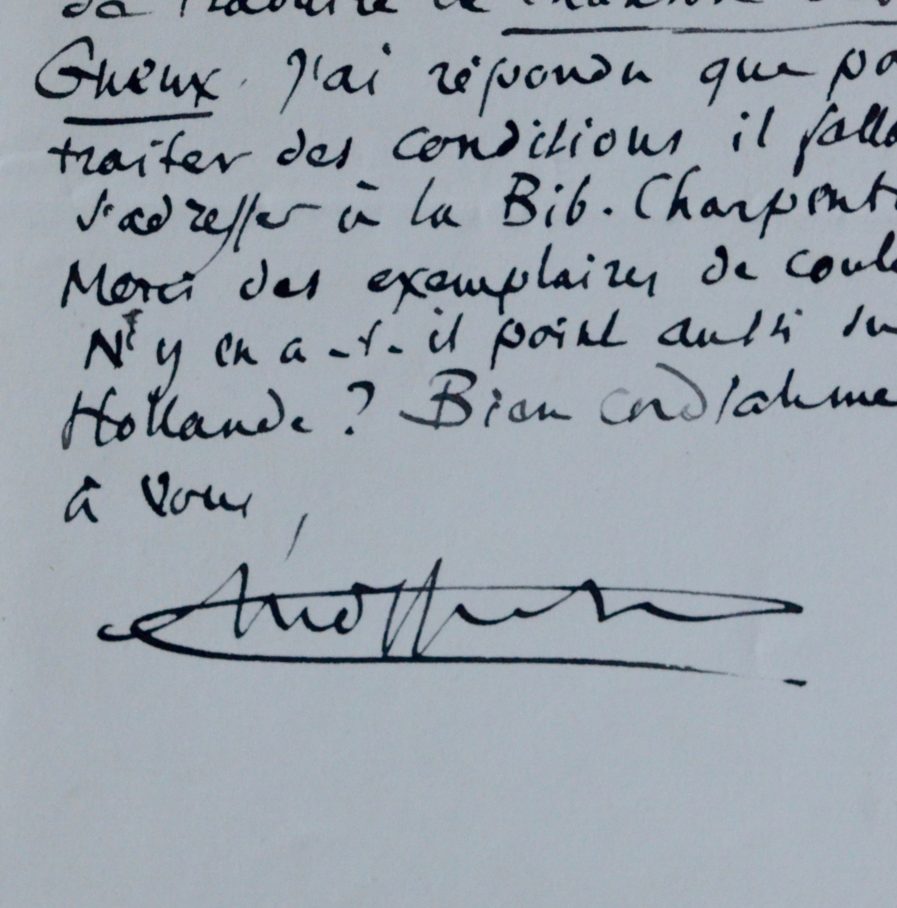 de traduire la chanson
Gueux. J'ai répondu que po
traiter des conditions il falla
s'adresser à la Bib. Charpenti
Merci des exemplaires de coul
N'y en a-t-il point aussi su
Hollande? Bien cordialeme
à vous,